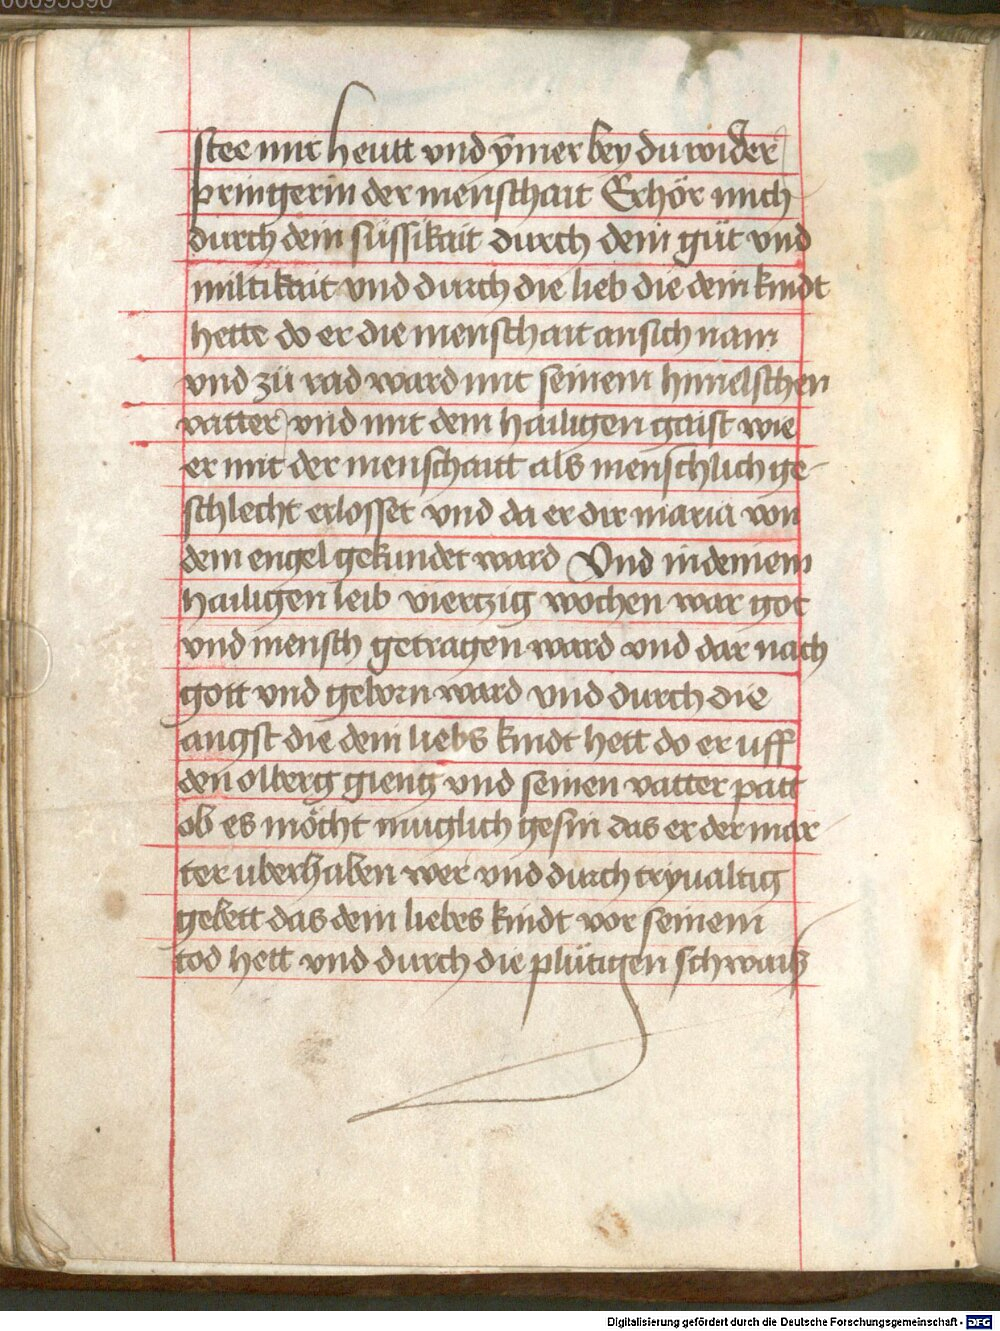 00095390
stee mir heutt vnd ÿmer bey du wider
pringerin der menschait Erhör mich
durch dein süssikait durch dein güt vnd
miltikait vnd durch die lieb die dein kindt
hette do er die menschait an sich nam
vnd zü rad ward mit seinem himelschen
vatter vnd mit dem hailigen gaist wie
er mit der menschaitt als menschlich ge-
schlecht erlosset vnd da er dir maria von
dem engel gekundet ward Vnd in deinem
hailigen leib viertzig wochen war got
vnd mensch getragen ward vnd dar nach
gott vnd geborn ward vnd durch die
angst die dein liebs kindt hett do er uff
den olberg gieng vnd seinen vatter patt
ob es möcht muglich gesin das er der mar
ter uberhaben wer vnd durch tryualtig
gebett das dein liebes kindt vor seinem
tod hett vnd durch die plütigen schwaiß
Digitalisierung gefördert durch die Deutsche Forschungsgemeinschaft - DFG